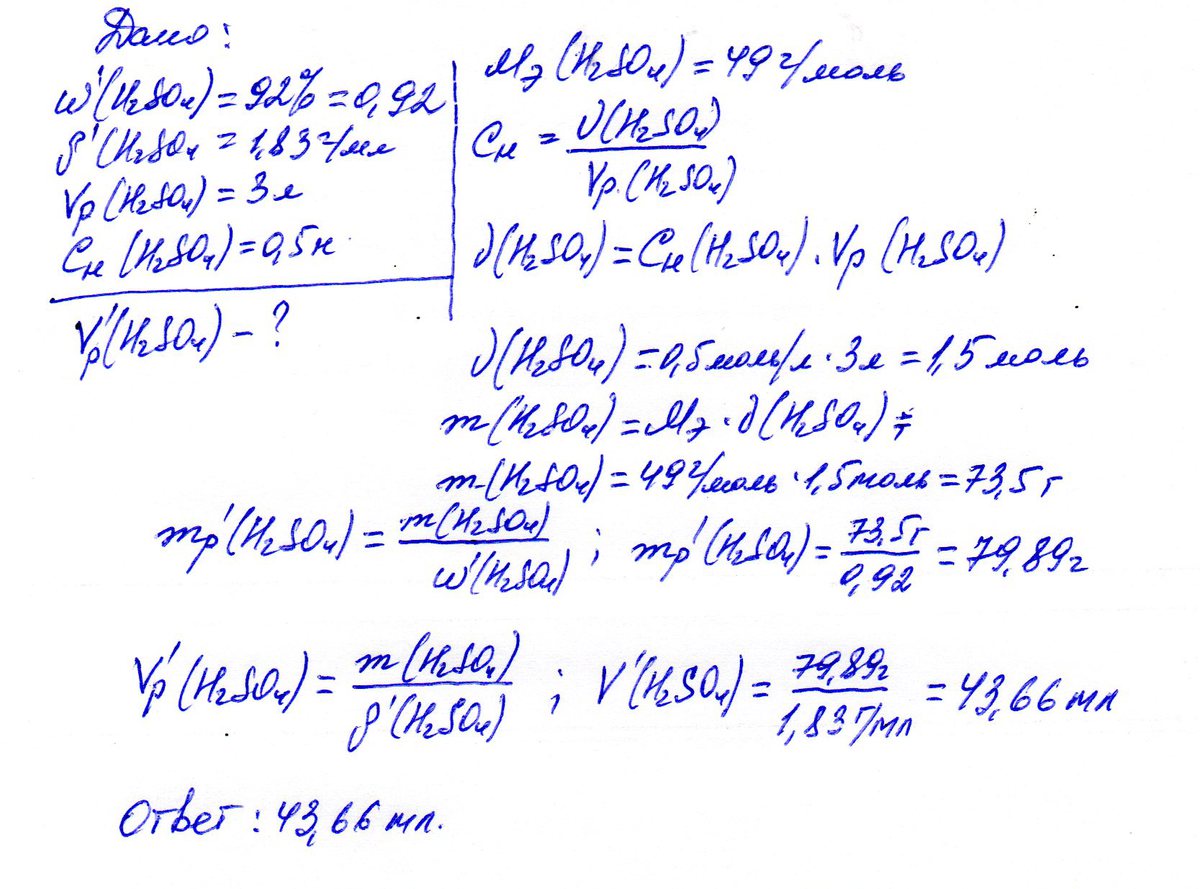 Дано:
ω'(H₂SO₄) = 92% = 0,92
ρ'(H₂SO₄ = 1,83 г/мл
Vр(H₂SO₄) = 3 л
Cн(H₂SO₄) = 0,5 н
V'р(H₂SO₄) – ?
Mэ(H₂SO₄) = 49 г/моль
Cн = ν(H₂SO₄) / Vр.(H₂SO₄)
ν(H₂SO₄) = Cн(H₂SO₄) · Vр(H₂SO₄)
ν(H₂SO₄) = 0,5 моль/л · 3 л = 1,5 моль
m(H₂SO₄) = Mэ · ν(H₂SO₄) =
m(H₂SO₄) = 49 г/моль · 1,5 моль = 73,5 г
mр'(H₂SO₄) = m(H₂SO₄) / ω'(H₂SO₄) ; mр'(H₂SO₄) = 73,5 г / 0,92 = 79,89 г
Vр'(H₂SO₄) = m(H₂SO₄) / ρ'(H₂SO₄) ; V'(H₂SO₄) = 79,89 г / 1,83 г/мл = 43,66 мл
Ответ : 43,66 мл.